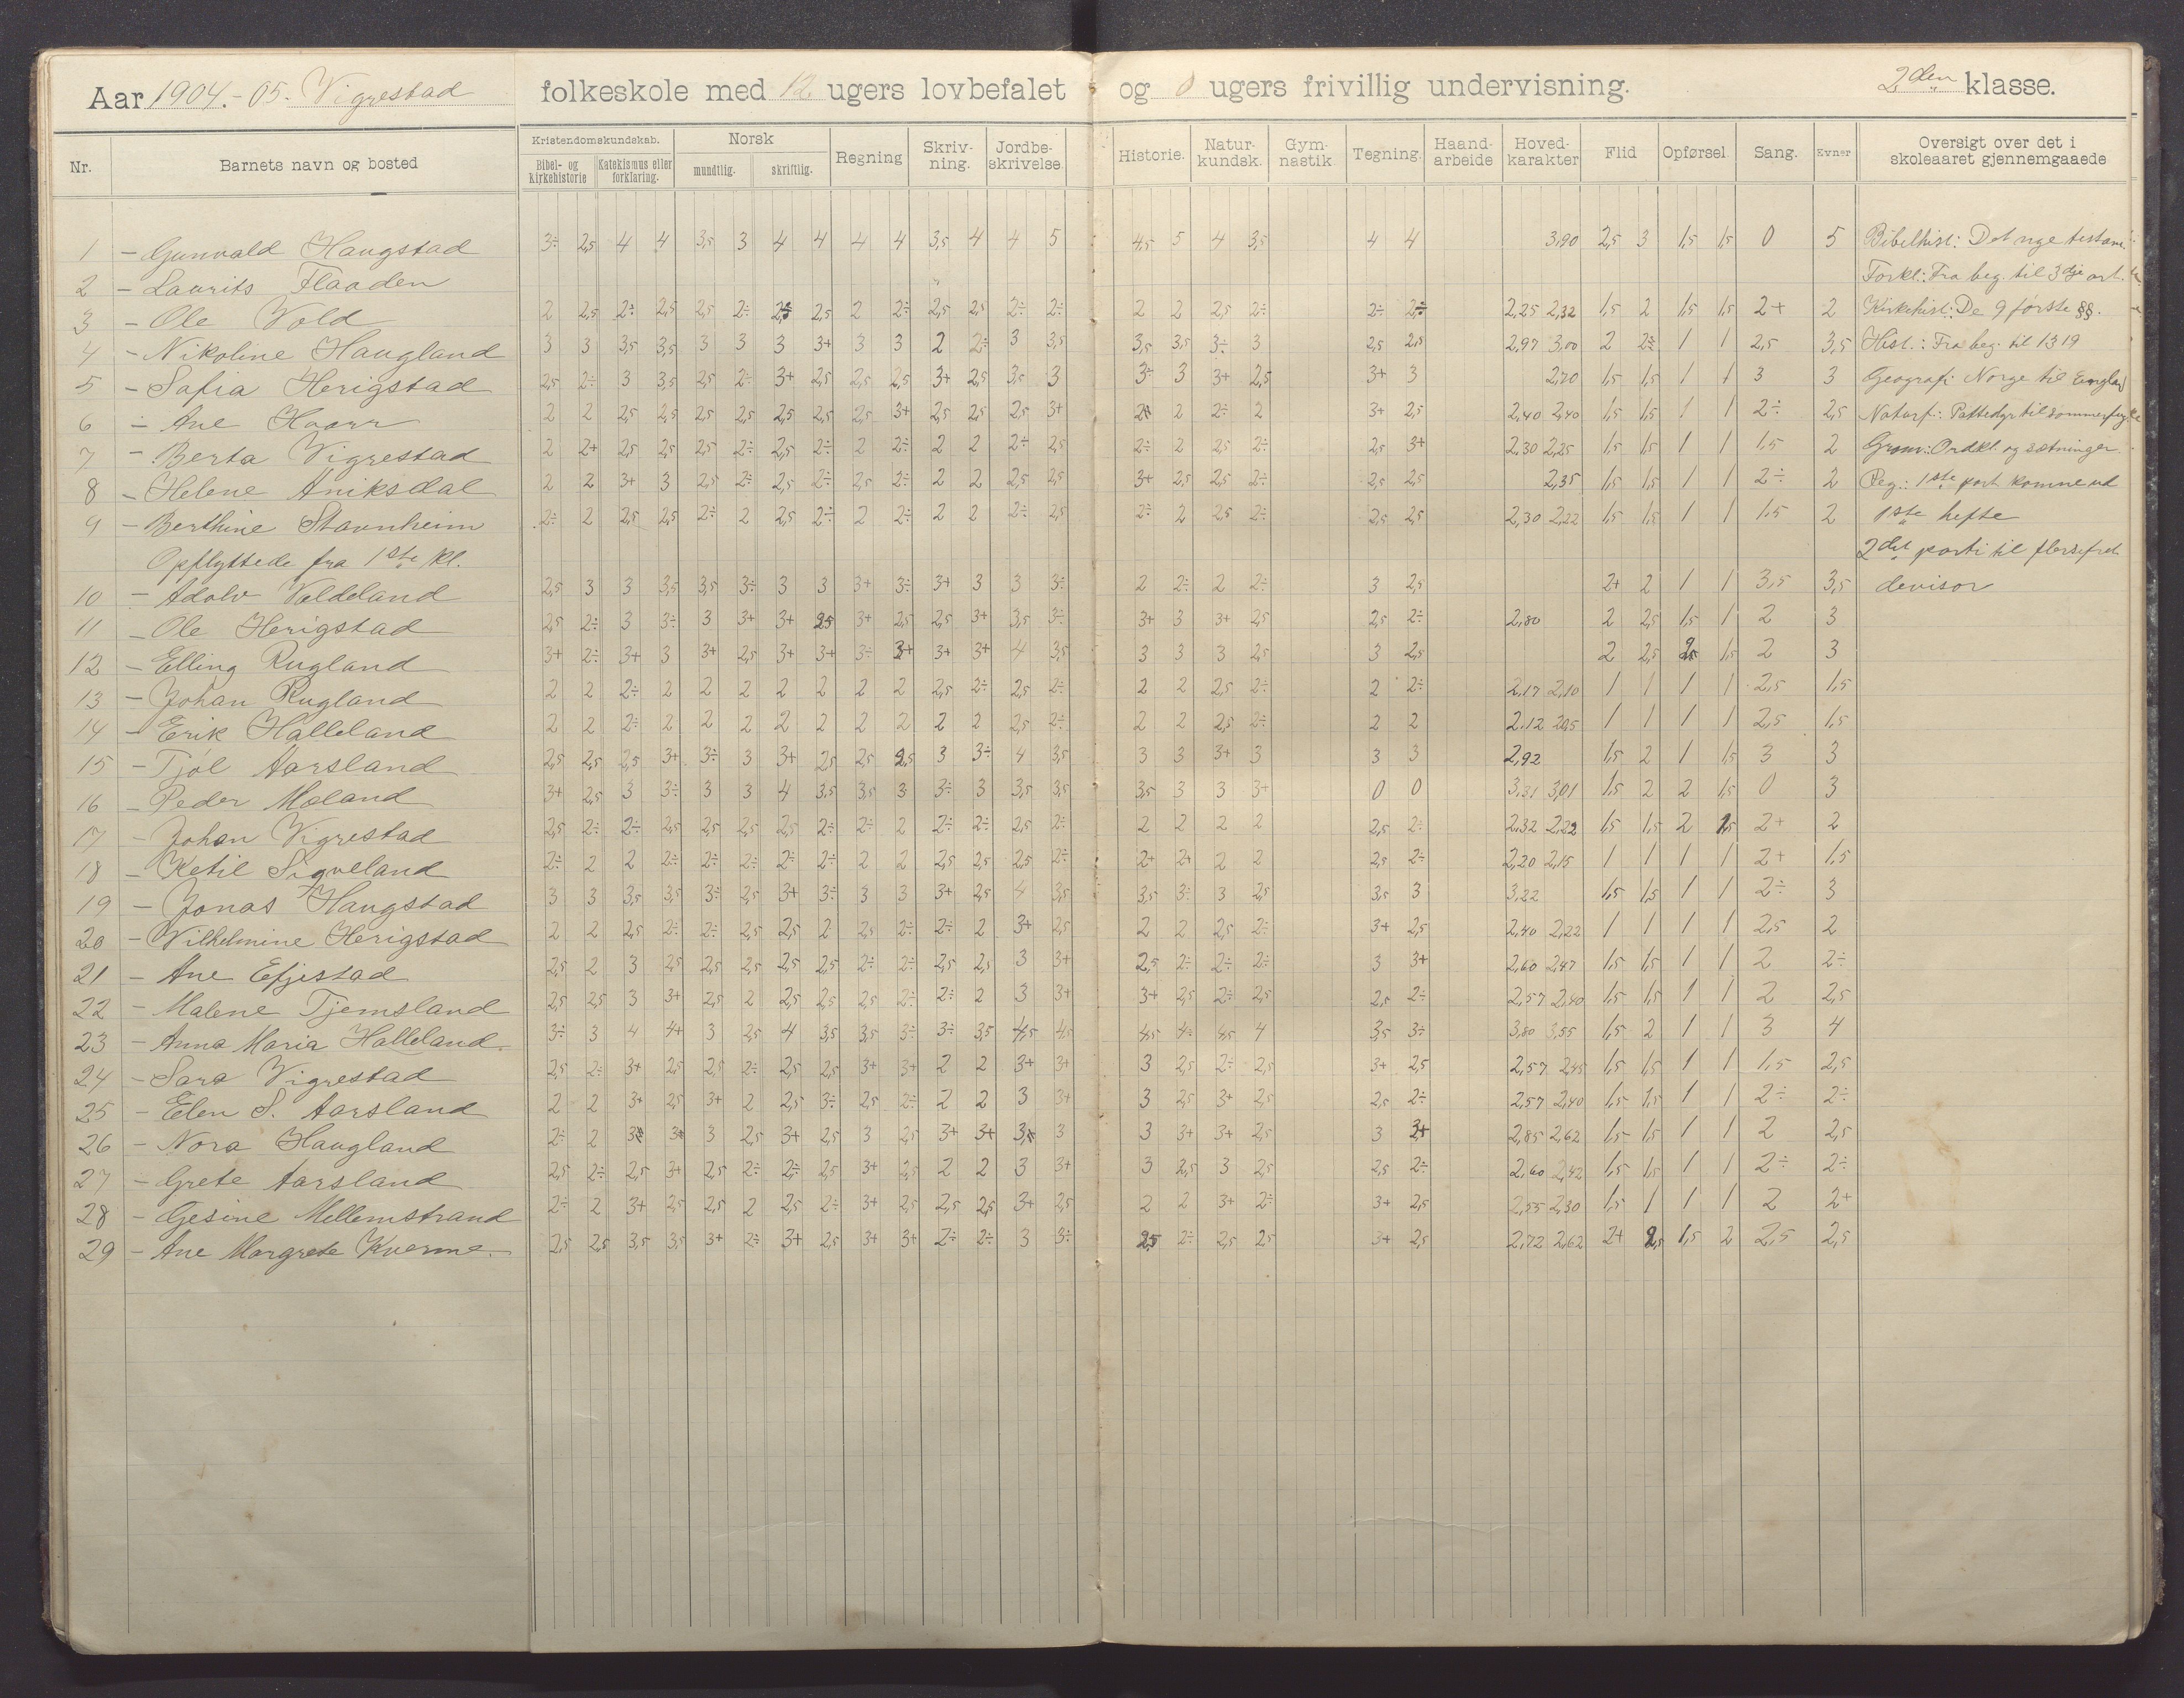 Aar 1904.-05. Vigrestad folkeskole med 12 ugers lovbefalet og 0 ugers frivillig undervisning. 2den klasse.
Nr. Barnets navn og bosted Kristendomskundskab. Bibel- og kirkehistorie Katekismus eller forklaring. Norsk mundtlig. skriftlig. Regning Skriv-ning. Jordbe-skrivelse. Historie. Natur-kundsk. Gym-nastik Tegning. Haand-arbeide Hoved-karakter Flid Opførsel Sang. Evner Oversigt over det i skoleaaret gjennemgaaede
1 - Gunvald Haugstad 3÷ 2,5 4 4 3,5 3 4 4 4 4 3,5 4 4 5 4,5 5 4 3,5 4 4 3,90 2,5 3 1,5 1,5 0 5 Bibelhist: Det nye testam.
2 - Laurits Flaaden Forkl: Fra beg. til 3dje art.
3 - Ole Vold 2 2,5 2÷ 2,5 2,5 2÷ 2,5 2,5 2 2÷ 2,5 2,5 2÷ 2÷ 2 2 2,5 2÷ 2÷ 2÷ 2,25 2,32 1,5 2 1,5 1,5 2+ 2 Kirkehist: De 9 første §§.
4 - Nikoline Haugland 3 3 3,5 3,5 3 3 3 3+ 3 3 2 2÷ 3 3,5 3,5 3,5 3÷ 3 2,5 2,5 2,97 3,00 2 2÷ 1 1 2,5 3,5 Hist.: Fra beg. til 1319
5 - Safia Herigstad 2,5 2÷ 3 3,5 2,5 2÷ 3+ 2,5 2,5 2,5 3+ 2,5 3,5 3 3÷ 3 3+ 2,5 3+ 3 2,70 1,5 1,5 1 1 3 3 Geografi Norge til England
6 - Ane Haarr 2 2 2,5 2,5 2,5 2,5 2,5 2,5 2,5 3+ 2,5 2,5 2,5 3+ 2 2÷ 2 3+ 2,5 2,40 2,40 1,5 1,5 1 1 2÷ 2,5 Naturf.: Pattedyr til sommerfug
7 - Berta Vigrestad 2 2+ 2,5 2,5 2,5 2÷ 2,5 2÷ 2 2÷ 2 2 2÷ 2,5 2÷ 2 2,5 2÷ 2,5 3+ 2,30 2,25 1,5 1,5 1 1 1,5 2 Gram: Ordkl. og sætninger.
8 - Helene Aniksdal 2 2 3+ 3 2,5 2÷ 2,5 2÷ 2,5 2÷ 2 2 2,5 2,5 3+ 2,5 2,5 2÷ 2,5 2,5 2,35 1,5 1,5 1 1 2÷ 2 Reg.: 1ste part komne ud
9 - Berthine Stavnheim 2÷ 2 2,5 2,5 2÷ 2 2,5 2÷ 2 2÷ 2 2 2÷ 2,5 2÷ 2 2,5 2÷ 2,5 2,5 2,30 2,22 1,5 1,5 1 1 1,5 2 1ste hefte
Opflyttede fra 1ste kl. 2det parti til flersifret
10 - Adolv Valdeland 2,5 3 3 3,5 3,5 3÷ 3 3 3+ 3÷ 3+ 3 3 3÷ 2 2÷ 2 2÷ 3 2,5 2+ 2 1 1 3,5 3,5 devisor
11 - Ole Herigstad 2,5 2÷ 3 3÷ 3 3+ 3+ 2,5 3+ 2,5 2,5 3+ 3,5 3÷ 3+ 3 3+ 2,5 2,5 2÷ 2,80 2 2,5 1,5 1 2 3
12 - Elling Rugland 3+ 2÷ 3+ 3 3+ 2,5 3+ 3+ 3÷ 3+ 3+ 3+ 4 3,5 3 3 3 2,5 3 2,5 2 2,5 2,5 1,5 2 3
13 - Johan Rugland 2 2 2÷ 2 2 2 2 2 2 2 2,5 2÷ 2,5 2÷ 2 2 2,5 2÷ 2 2÷ 2,17 2,10 1 1 1 1 2,5 1,5
14 - Erik Halleland 2 2 2÷ 2 2 2 2 2 2 2 2 2 2,5 2÷ 2 2 2,5 2÷ 2 2 2,12 2,05 1 1 1 1 2,5 1,5
15 - Tjøl Aarsland 2,5 2,5 2,5 3+ 3÷ 3 3+ 2,5 2,5 2,5 3 3÷ 4 3,5 3 3 3+ 3 3 3 2,92 1,5 2 1 1,5 3 3
16 - Peder Moland 3+ 2,5 3 3÷ 3 3 4 3,5 3,5 3 3÷ 3 3,5 3,5 3,5 3 3 3+ 0 0 3,31 3,01 1,5 2 2 1,5 0 3
17 - Johan Vigrestad 2,5 2÷ 2÷ 2,5 2,5 2,5 2,5 2÷ 2÷ 2 2÷ 2÷ 2,5 2÷ 2 2 2 2 2,5 2÷ 2,32 2,22 1,5 1,5 2 1,5 2+ 2
18 - Ketil Sigveland 2÷ 2 2 2÷ 2÷ 2÷ 2÷ 2÷ 2 2 2,5 2,5 2,5 2÷ 2+ 2+ 2 2 2,5 2÷ 2,20 2,15 1 1 1 1 2+ 1,5
19 - Jonas Haugstad 3 3 3,5 3,5 3÷ 2,5 3+ 3÷ 3 3 3+ 2,5 4 3,5 3,5 3÷ 3 2,5 3,5 3 3,22 1,5 1,5 1 1 2÷ 3
20 - Vilhelmine Herigstad 2 2 2,5 2÷ 2÷ 2,5 2,5 2 2,5 2÷ 2÷ 2 3+ 2,5 2 2 2,5 2÷ 3+ 2,5 2,40 2,22 1 1 1 1 2,5 2
21 - Ane Efjestad 2,5 2 3 2,5 2,5 2,5 2,5 2,5 2÷ 2÷ 2,5 2,5 3 3+ 2,5 2÷ 2÷ 2÷ 3 3+ 2,60 2,47 1,5 1,5 1 1 2 2÷
22 - Malene Tjemsland 2,5 2,5 3 3+ 2,5 2 2,5 2,5 2,5 2÷ 2÷ 2 3 3+ 3+ 2,5 2÷ 2,5 2,5 2÷ 2,57 2,40 1,5 1,5 1 1 2 2,5
23 - Anna Maria Halleland. 3÷ 3 4 4+ 3 2,5 4 3,5 3,5 3÷ 3÷ 3,5 4,5 4,5 4,5 4÷ 4,5 4 3,5 3÷ 3,80 3,55 1,5 2 1 1 3 4
24 - Sara Vigrestad 2,5 2÷ 3+ 2,5 2,5 2÷ 2,5 2,5 3+ 3+ 2 2 3+ 3+ 3 2,5 2÷ 2,5 3+ 2,5 2,57 2,45 1,5 1,5 1 1 1,5 2,5
25 - Elen S. Aarsland 2 2 3+ 2,5 3+ 2 2,5 3÷ 2,5 2÷ 2 2 3 3+ 3 2,5 3+ 2,5 2,5 2÷ 2,57 2,40 1,5 1,5 1 1 2÷ 2÷
26 - Nora Haugland 2÷ 2 3+ 3 2,5 3+ 2,5 3 2,5 3+ 3+ 3,5 3 3 3+ 3+ 2,5 3 3+ 2,85 2,62 1,5 1,5 1 1 2 2,5
27 - Grete Aarsland 2,5 2÷ 2,5 3+ 2,5 2÷ 2÷ 2,5 3+ 2,5 2 2 3 3+ 3 2,5 3 2,5 2,5 2÷ 2,60 2,42 1,5 1,5 1 1 2÷ 2÷
28 - Gesine Mellemstrand 2÷ 2 3+ 2,5 2,5 2 2,5 2÷ 3+ 2,5 2,5 2,5 3+ 2,5 2 2 3+ 2÷ 3+ 2,5 2,55 2,30 1,5 1 1 1 2 2+
29 - Ane Margrete Kverme. 2,5 2,5 3,5 3,5 3+ 2÷ 3+ 2,5 3+ 3+ 2÷ 2÷ 3 3÷ 2,5 2÷ 2,5 2,5 3+ 2,5 2,72 2,62 2+ 2,5 1,5 2 2,5 2,5